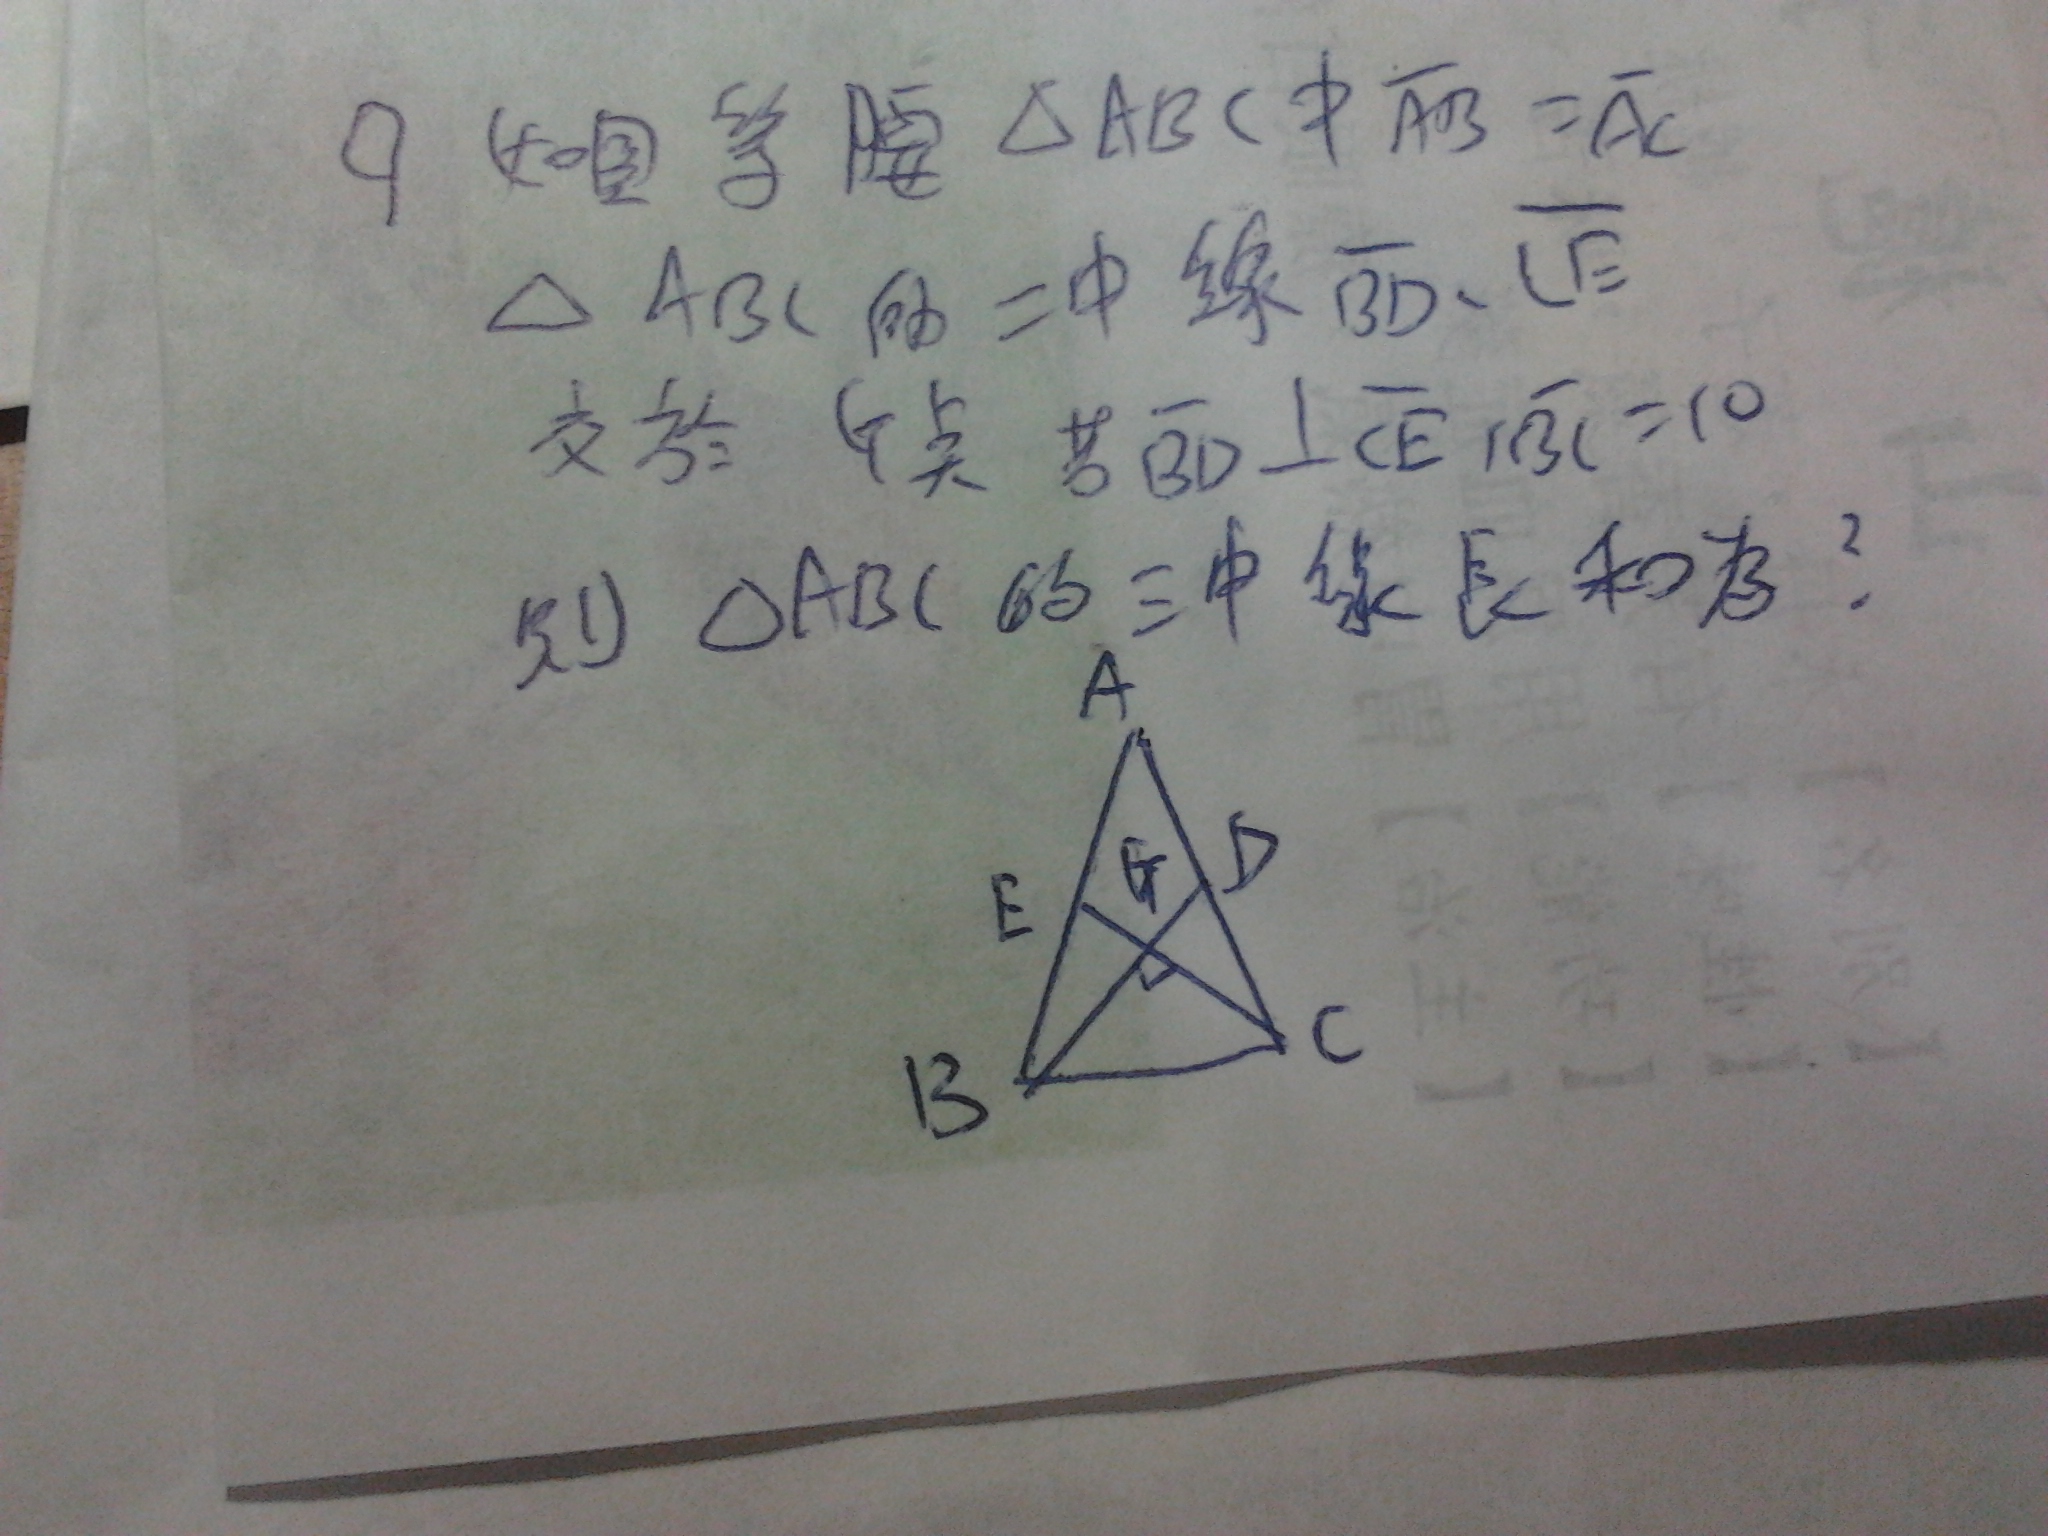 9 如圖 等腰 △ABC中 AB = AC
△ ABC 的二中線 BD、CE
交於 G点 若 BD⊥CE, BC=10
則 △ABC 的三中線長和為?
A
E G D
B C